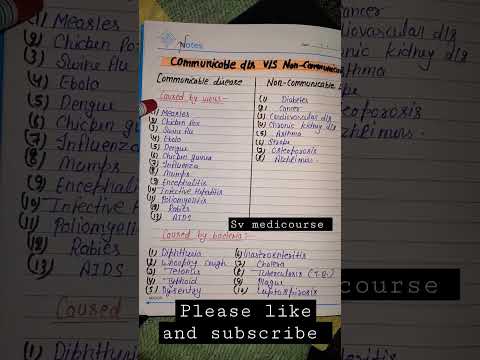 Notes
Communicable dis V/S Non-Communicable
Communicable disease
Caused by virus:-
(1) Measles
(2) Chicken Pox
(3) Swine flu
(4) Ebola
(5) Dengue
(6) Chicken gunia
(7) Influenza
(8) Mumps
(9) Encephalitis
(10) Infective Hepatitis
(11) Poliomyelitis
(12) Rabies
(13) AIDS
Non-Communicable
(1) Diabetes
(2) Cancer
(3) Cardiovascular dis
(4) Chronic kidney dis
(5) Asthma
(6) Stroke
(7) Osteoporosis
(8) Alzheimers
Sv medicourse
Caused by bacteria:-
(1) Diphtheria
(2) Whooping Cough
(3) Tetanus
(4) Typhoid
(5) Dysentry
(6) Gastroenteritis
(7) Cholera
(8) Tuberculosis (T.B.)
(9) Plague
(10) Leptospirosis
Please like
and subscribe
(1) Measles
(2) Chicken Pox
(3) Swine flu
(4) Ebola
(5) Dengue
(6) Chicken gun
(7) Influenza
(8) Mumps
(9) Encephaliti
(10) Infective
(11) Poliomyeliti
(12) Rabies
(13) AIDS
Caused
(1) Diphth
Cancer
diovascular dis
onic kidney dis
sthma
roke
eoporosis
lzheimers
course